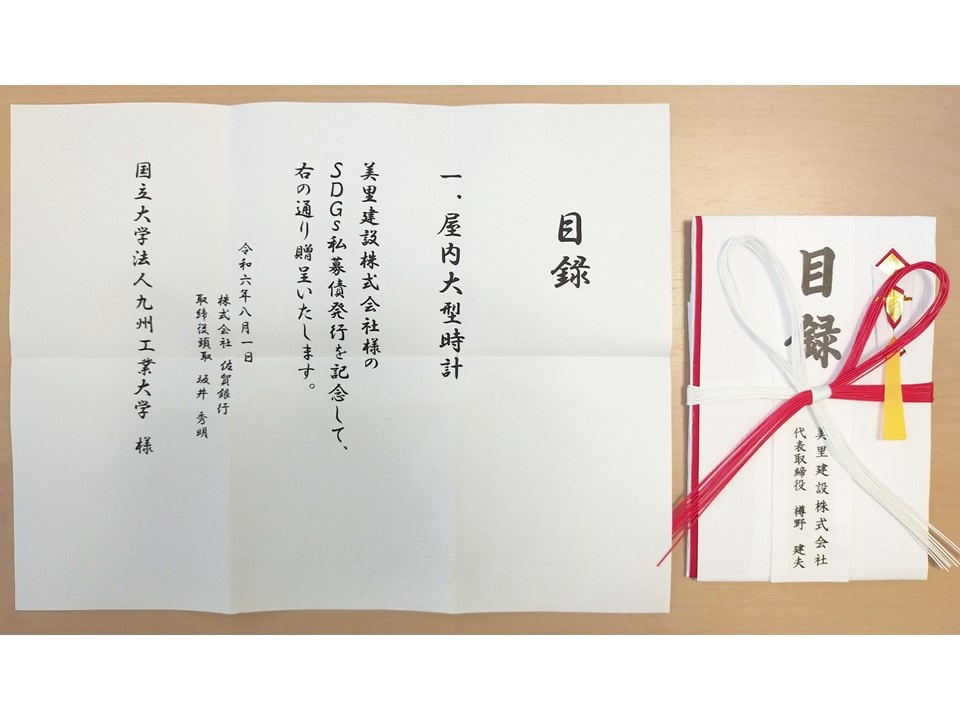 目録
一、屋内大型時計
美里建設株式会社様の
SDGs私募債発行を記念して、
右の通り贈呈いたします。
令和六年八月一日
株式会社 佐賀銀行
取締役頭取 坂井 秀明
国立大学法人九州工業大学 様
目録
美里建設株式会社
代表取締役 樽野 建夫